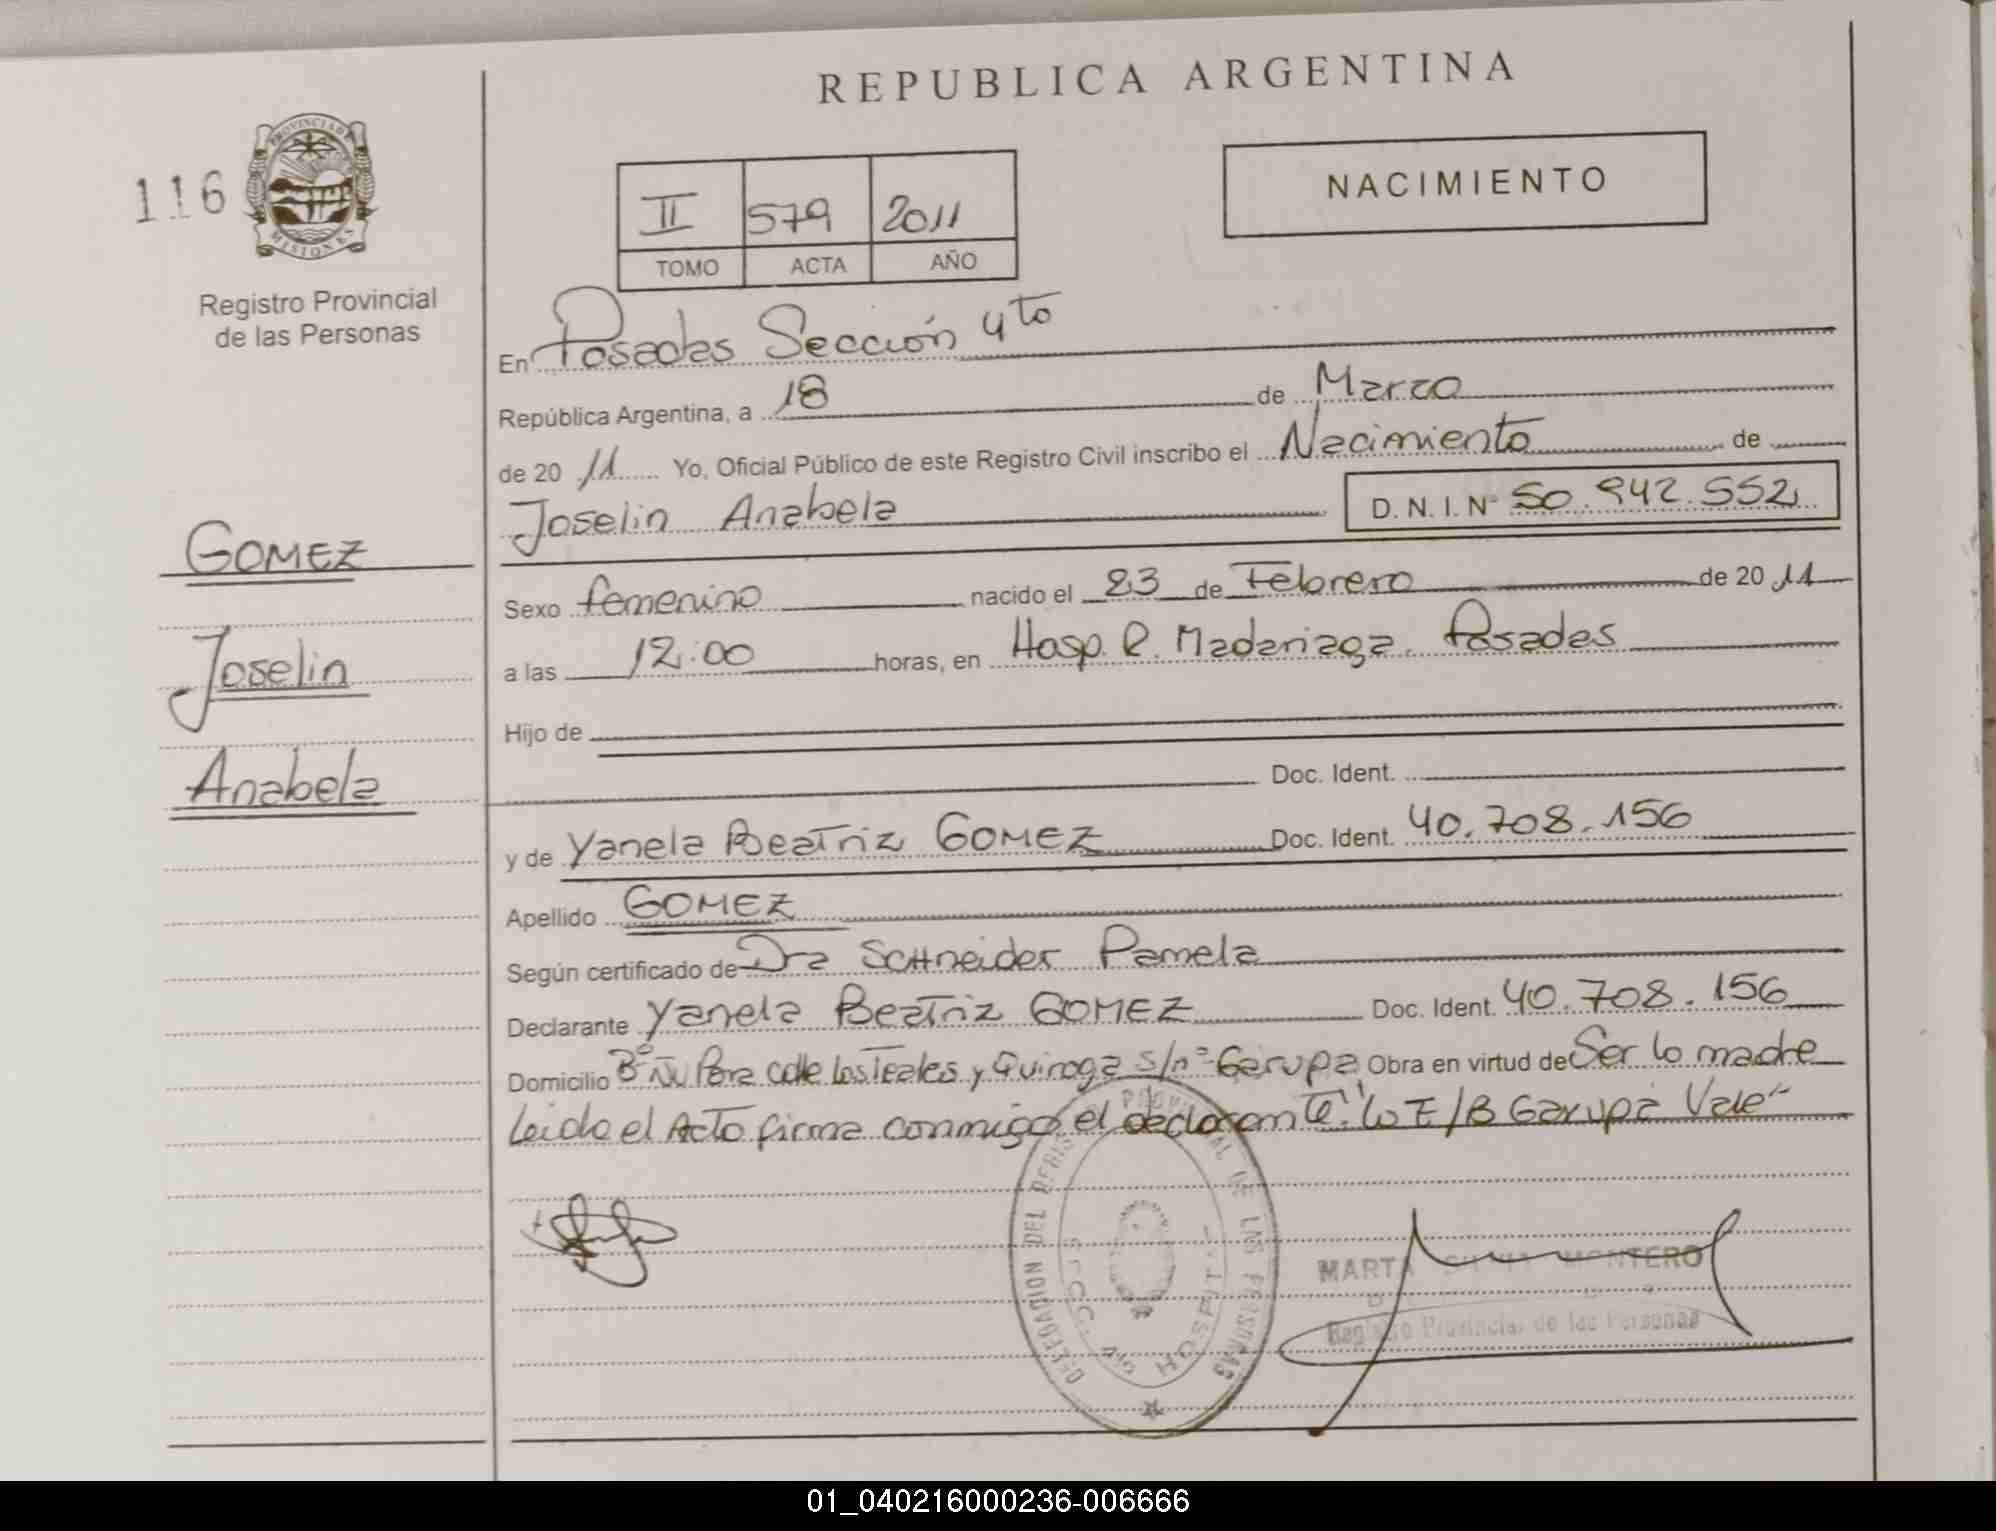 REPUBLICA ARGENTINA
116
PROVINCIA DE
MISIONES
Registro Provincial
de las Personas
II 579 2011
TOMO ACTA AÑO
NACIMIENTO
En Posadas Sección 4to
República Argentina, a 18 de Marzo
de 2011 Yo, Oficial Público de este Registro Civil inscribo el Nacimiento de
Joselin Anabela D.N.I. Nº 50.942.552
GOMEZ
Joselin
Anabela
Sexo femenino nacido el 23 de Febrero de 2011
a las 12:00 horas, en Hosp. R. Madariaga. Posadas
Hijo de
Doc. Ident.
y de Yanela Beatriz GOMEZ Doc. Ident. 40.708.156
Apellido GOMEZ
Según certificado de Dra Schneider Pamela
Declarante Yanela Beatriz GOMEZ Doc. Ident. 40.708.156
Domicilio Bº Ñu Pora calle Los Teales y Quiroga s/nº Garupa Obra en virtud de Ser la madre
Leida el Acta firma conmigo el declarante. "Lo E/B Garupa Vale"
DELEGACION DEL REGISTRO PROVINCIAL DE LAS PERSONAS
SECC. 4to HOSPITAL
MARTA MONTERO
Registro Provincial de las Personas
01_040216000236-006666